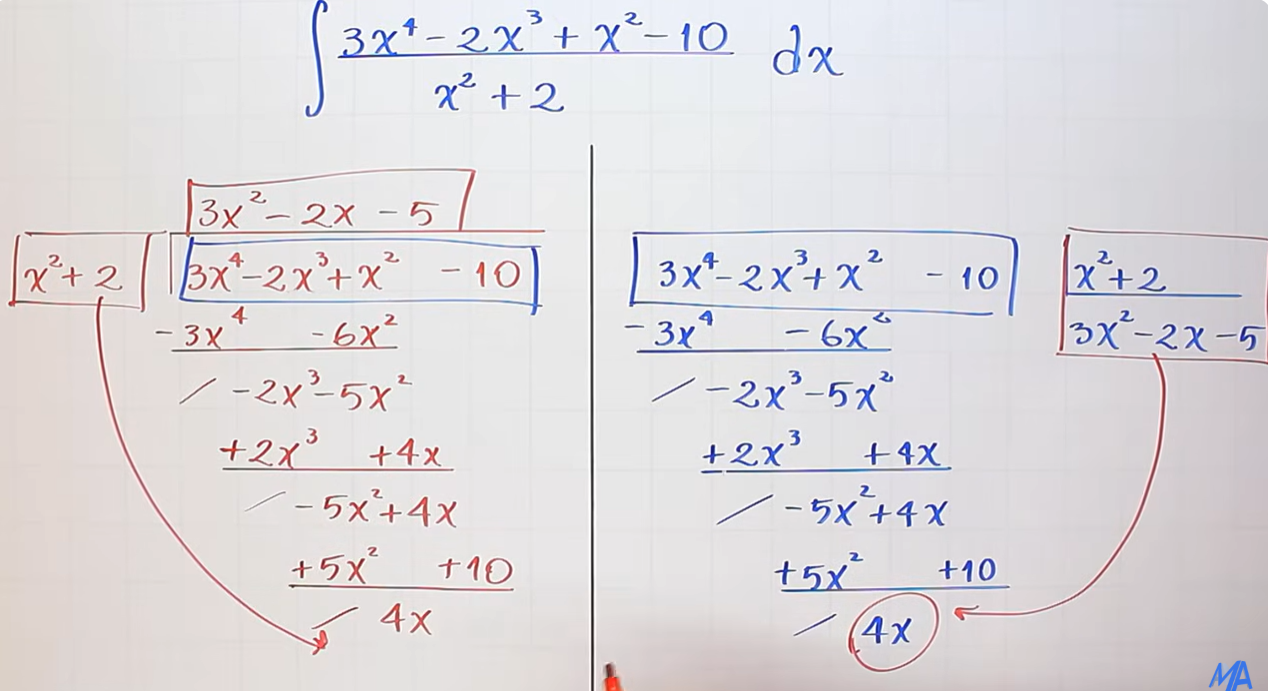 ∫ (3x⁴ - 2x³ + x² - 10)/(x² + 2) dx
3x² - 2x - 5
x² + 2 3x⁴ - 2x³ + x² - 10
- 3x⁴ - 6x²
/ - 2x³ - 5x²
+ 2x³ + 4x
/ - 5x² + 4x
+ 5x² + 10
/ 4x
3x⁴ - 2x³ + x² - 10 x² + 2
- 3x⁴ - 6x² 3x² - 2x - 5
/ - 2x³ - 5x²
+ 2x³ + 4x
/ - 5x² + 4x
+ 5x² + 10
/ 4x
MA